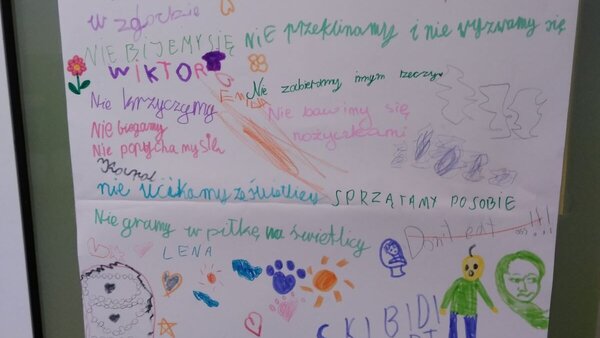 w zgodzie
NIE BIJEMY SIĘ
NiE przeklinamy i nie wyzwamy się
WIKTOR
Nie zabieramy innym rzeczy
Nie krzyczymy
Nie bawimy się
nożyczkami
Nie biegamy
Nie popychamy się
nie uciekamy ze świetlicy
SPRZĄTAMY POSOBIE
Nie gramy w piłkę na świetlicy
Dont eat !!!
LENA
SKIBIDI